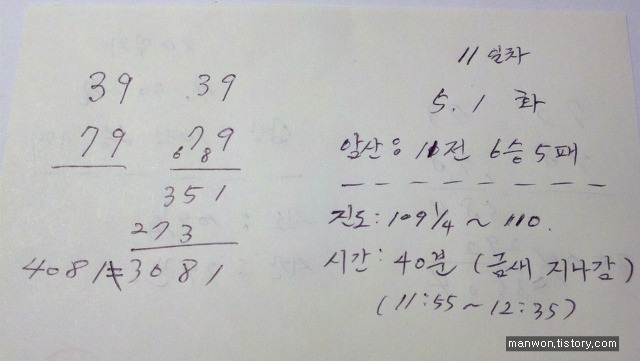 39 39
79 79
6 8
351
273
4081≠3081
11일차
5. 1 화
암산: 11전 6승 5패
진도: 109 1/4 ~ 110.
시간: 40분 (금새 지나감)
(11:55~12:35)
manwon.tistory.com